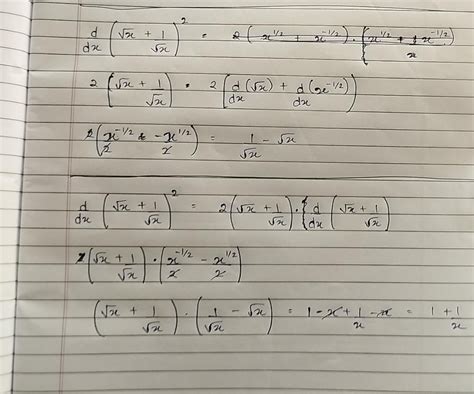 d/dx (√x + 1/√x)² = 2 (x^1/2 + x^-1/2) . {
2 (√x + 1/√x) • 2 [d/dx (√x) + d/dx (x^-1/2)]
2 (x^-1/2/2 - x^1/2/2) = 1/√x - √x
d/dx (√x + 1/√x)² = 2 (√x + 1/√x) . {d/dx (√x + 1/√x)
2 (√x + 1/√x) • (x^-1/2/2 - x^1/2/2)
(√x + 1/√x) . (1/√x - √x) = 1 - x + 1/x - x = 1 + 1/x